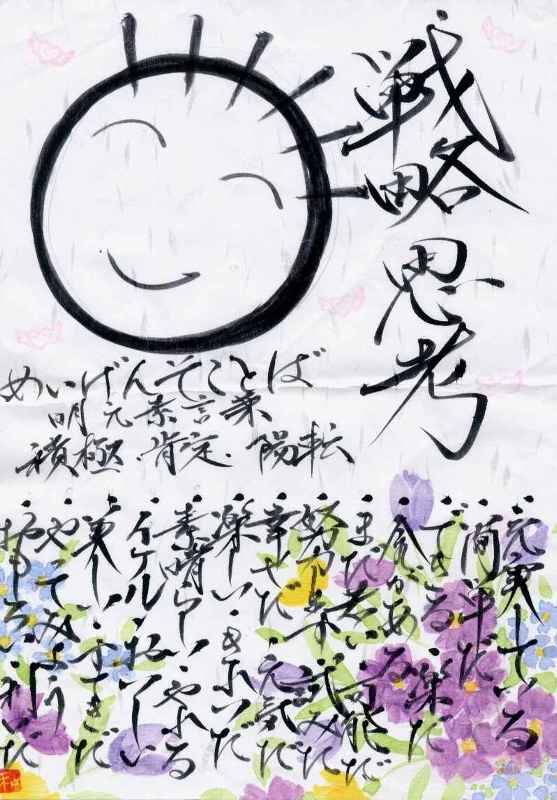 戦略思考
めいげんそことば
明元素言葉
積極・肯定・陽転
・充実している
・簡単だ
・できる・楽だ
・余力がある
・まだ若い・可能だ
・努力します・試みた
・幸せだ・元気だ
・楽しい・きれいだ
・素晴らしい・やれる
・イケル・おいしい
・美しい・すきだ
・やってみよう
・おもしろい・好いだ